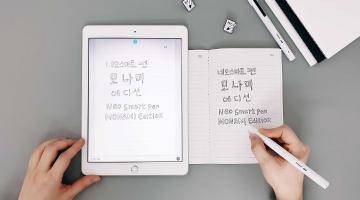 네오스마트 펜
모나미
에디션
Neo Smart Pen
MONAMI Edition
네오스마트 펜
모나미
에디션
Neo Smart Pen
MONAMI Edition